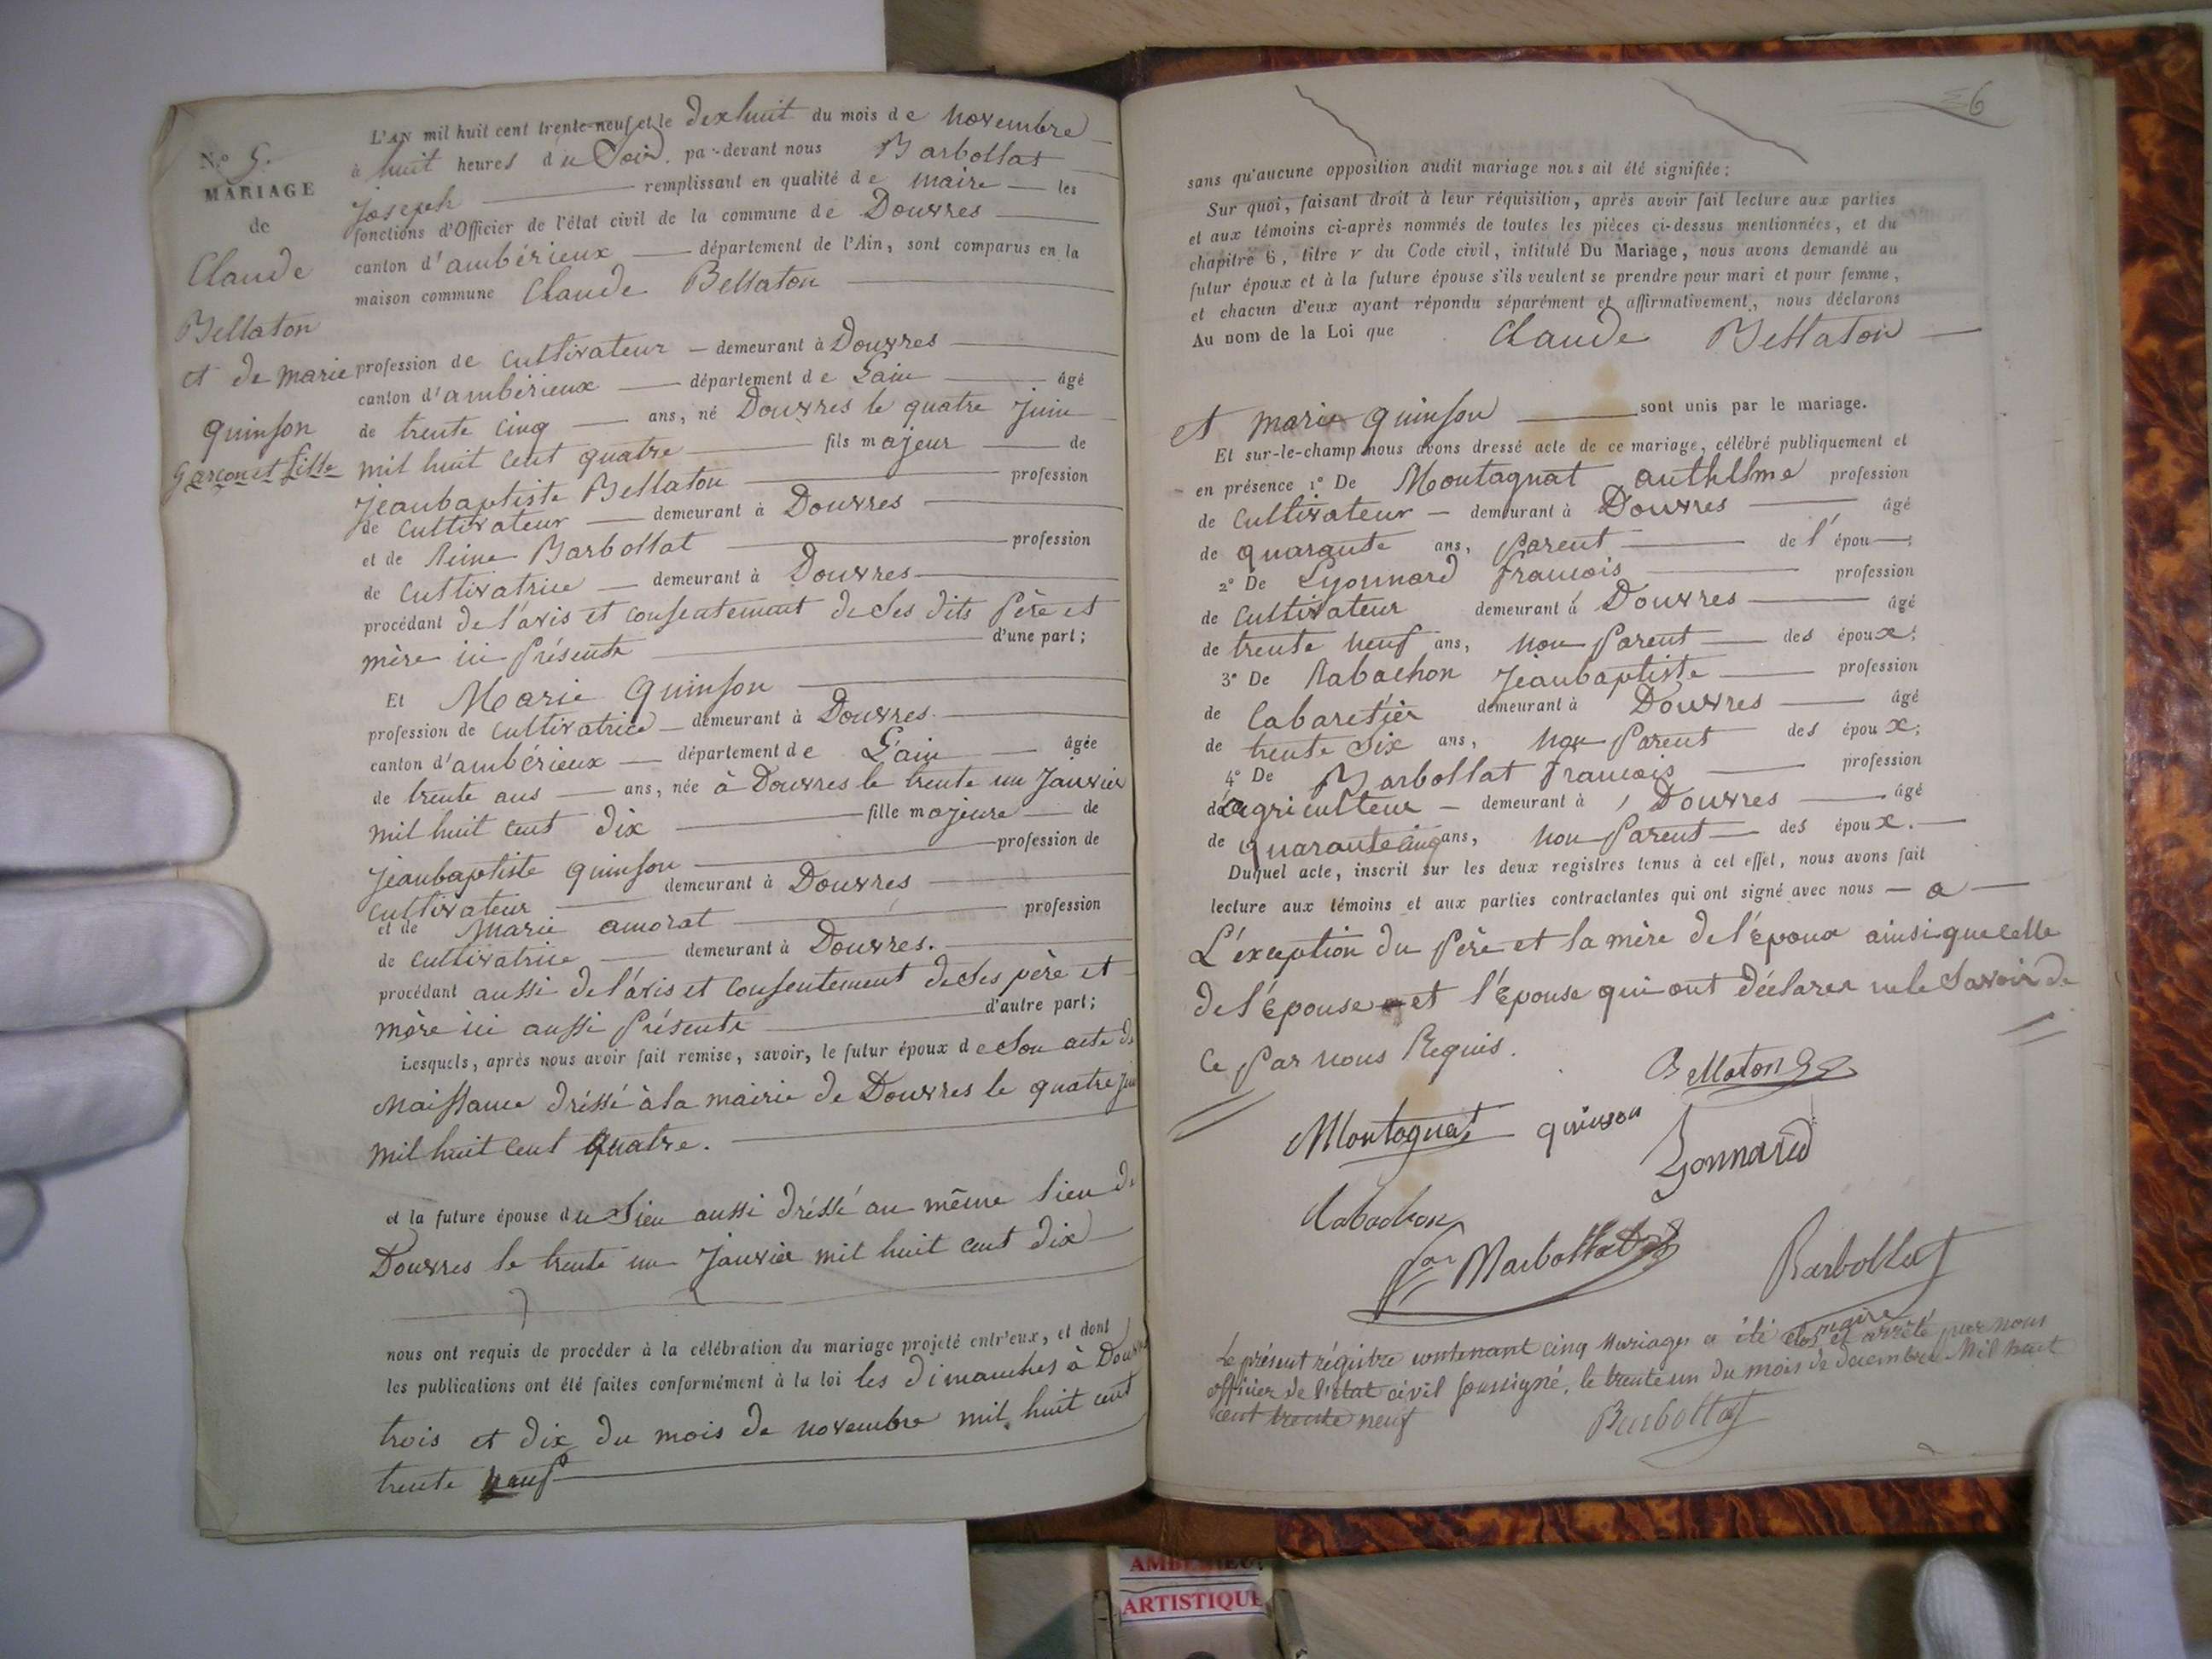 N.º 5.
MARIAGE
de
Claude
Bellaton
et de marie
quinson
Garçon et fille
L'AN mil huit cent trente-neuf et le dexhuit du mois de Novembre
à huit heures du Soir. par-devant nous Barbollat
Joseph remplissant en qualité de maire les
fonctions d'Officier de l'état civil de la commune de Douvres
canton d'ambérieux département de l'Ain, sont comparus en la
maison commune Claude Bellaton
profession de cultivateur demeurant à Douvres
canton d'ambérieux département de Lain âgé
de trente cinq ans, né Douvres le quatre Juin
mil huit cent quatre fils majeur de
Jeanbaptiste Bellaton profession
de Cultivateur demeurant à Douvres
et de Reine Barbollat profession
de Cultivatrice demeurant à Douvres
procédant de l'avis et consentement de Ses dits Père et
mère ici Présente d'une part;
Et Marie Quinson
profession de Cultivatrice demeurant à Douvres.
canton d'ambérieux département de Lain âgée
de trente ans ans, née à Douvres le trente un Janvier
mil huit cent dix fille majeure de
Jeanbaptiste quinson profession de
Cultivateur demeurant à Douvres
et de Marie amorat profession
de Cultivatrice demeurant à Douvres.
procédant aussi de l'avis et Consentement de Ses père et
mère ici aussi Présente d'autre part;
Lesquels, après nous avoir fait remise, savoir, le futur époux de Son acte de
Naissance dréssé à la mairie de Douvres le quatre Juin
mil huit Cent quatre.
et la future épouse du Sien aussi dréssé au même lieu de
Douvres le trente un Janvier mil huit cent dix
nous ont requis de procéder à la célébration du mariage projeté entr'eux, et dont
les publications ont été faites conformément à la loi les dimanches à Douvres
trois et dix du mois de novembre mil huit cent
trente neuf
6
sans qu'aucune opposition audit mariage nous ait été signifiée;
Sur quoi, faisant droit à leur réquisition, après avoir fait lecture aux parties
et aux témoins ci-après nommés de toutes les pièces ci-dessus mentionnées, et du
chapitre 6, titre v du Code civil, intitulé Du Mariage, nous avons demandé au
futur époux et à la future épouse s'ils veulent se prendre pour mari et pour femme,
et chacun d'eux ayant répondu séparément et affirmativement, nous déclarons
Au nom de la Loi que Claude Bellaton
et marie quinson sont unis par le mariage.
Et sur-le-champ nous avons dressé acte de ce mariage, célébré publiquement et
en présence 1º De Montagnat anthelme profession
de Cultivateur demeurant à Douvres âgé
de quarante ans, Parent de l'épou ;
2º De Lyonnard francois profession
de Cultivateur demeurant à Douvres âgé
de trente neuf ans, non Parent des époux;
3º De Rabachon Jeanbaptiste profession
de Cabaretier demeurant à Douvres âgé
de trente Six ans, non Parent des époux;
4º De Barbollat francois profession
de agriculteur demeurant à Douvres âgé
de quarante cinq ans, non Parent des époux.
Duquel acte, inscrit sur les deux registres tenus à cet effet, nous avons fait
lecture aux témoins et aux parties contractantes qui ont signé avec nous a
L'éxception du Père et la mère de l'époux ainsi que celle
de l'épouse et l'épouse qui ont déclarer ne le Savoir de
Ce Par nous Requis.
Bellaton
Montagnat quinson
Lonnard
Rabachon
Barbollat
Barbollat
maire
Le présent régistre contenant cinq Mariages a été clos et arrêté par nous
officier de l'état civil soussigné, le trente un du mois de decembre Mil huit
cent trente neuf
Barbollat
AMBERIEU
ARTISTIQUE